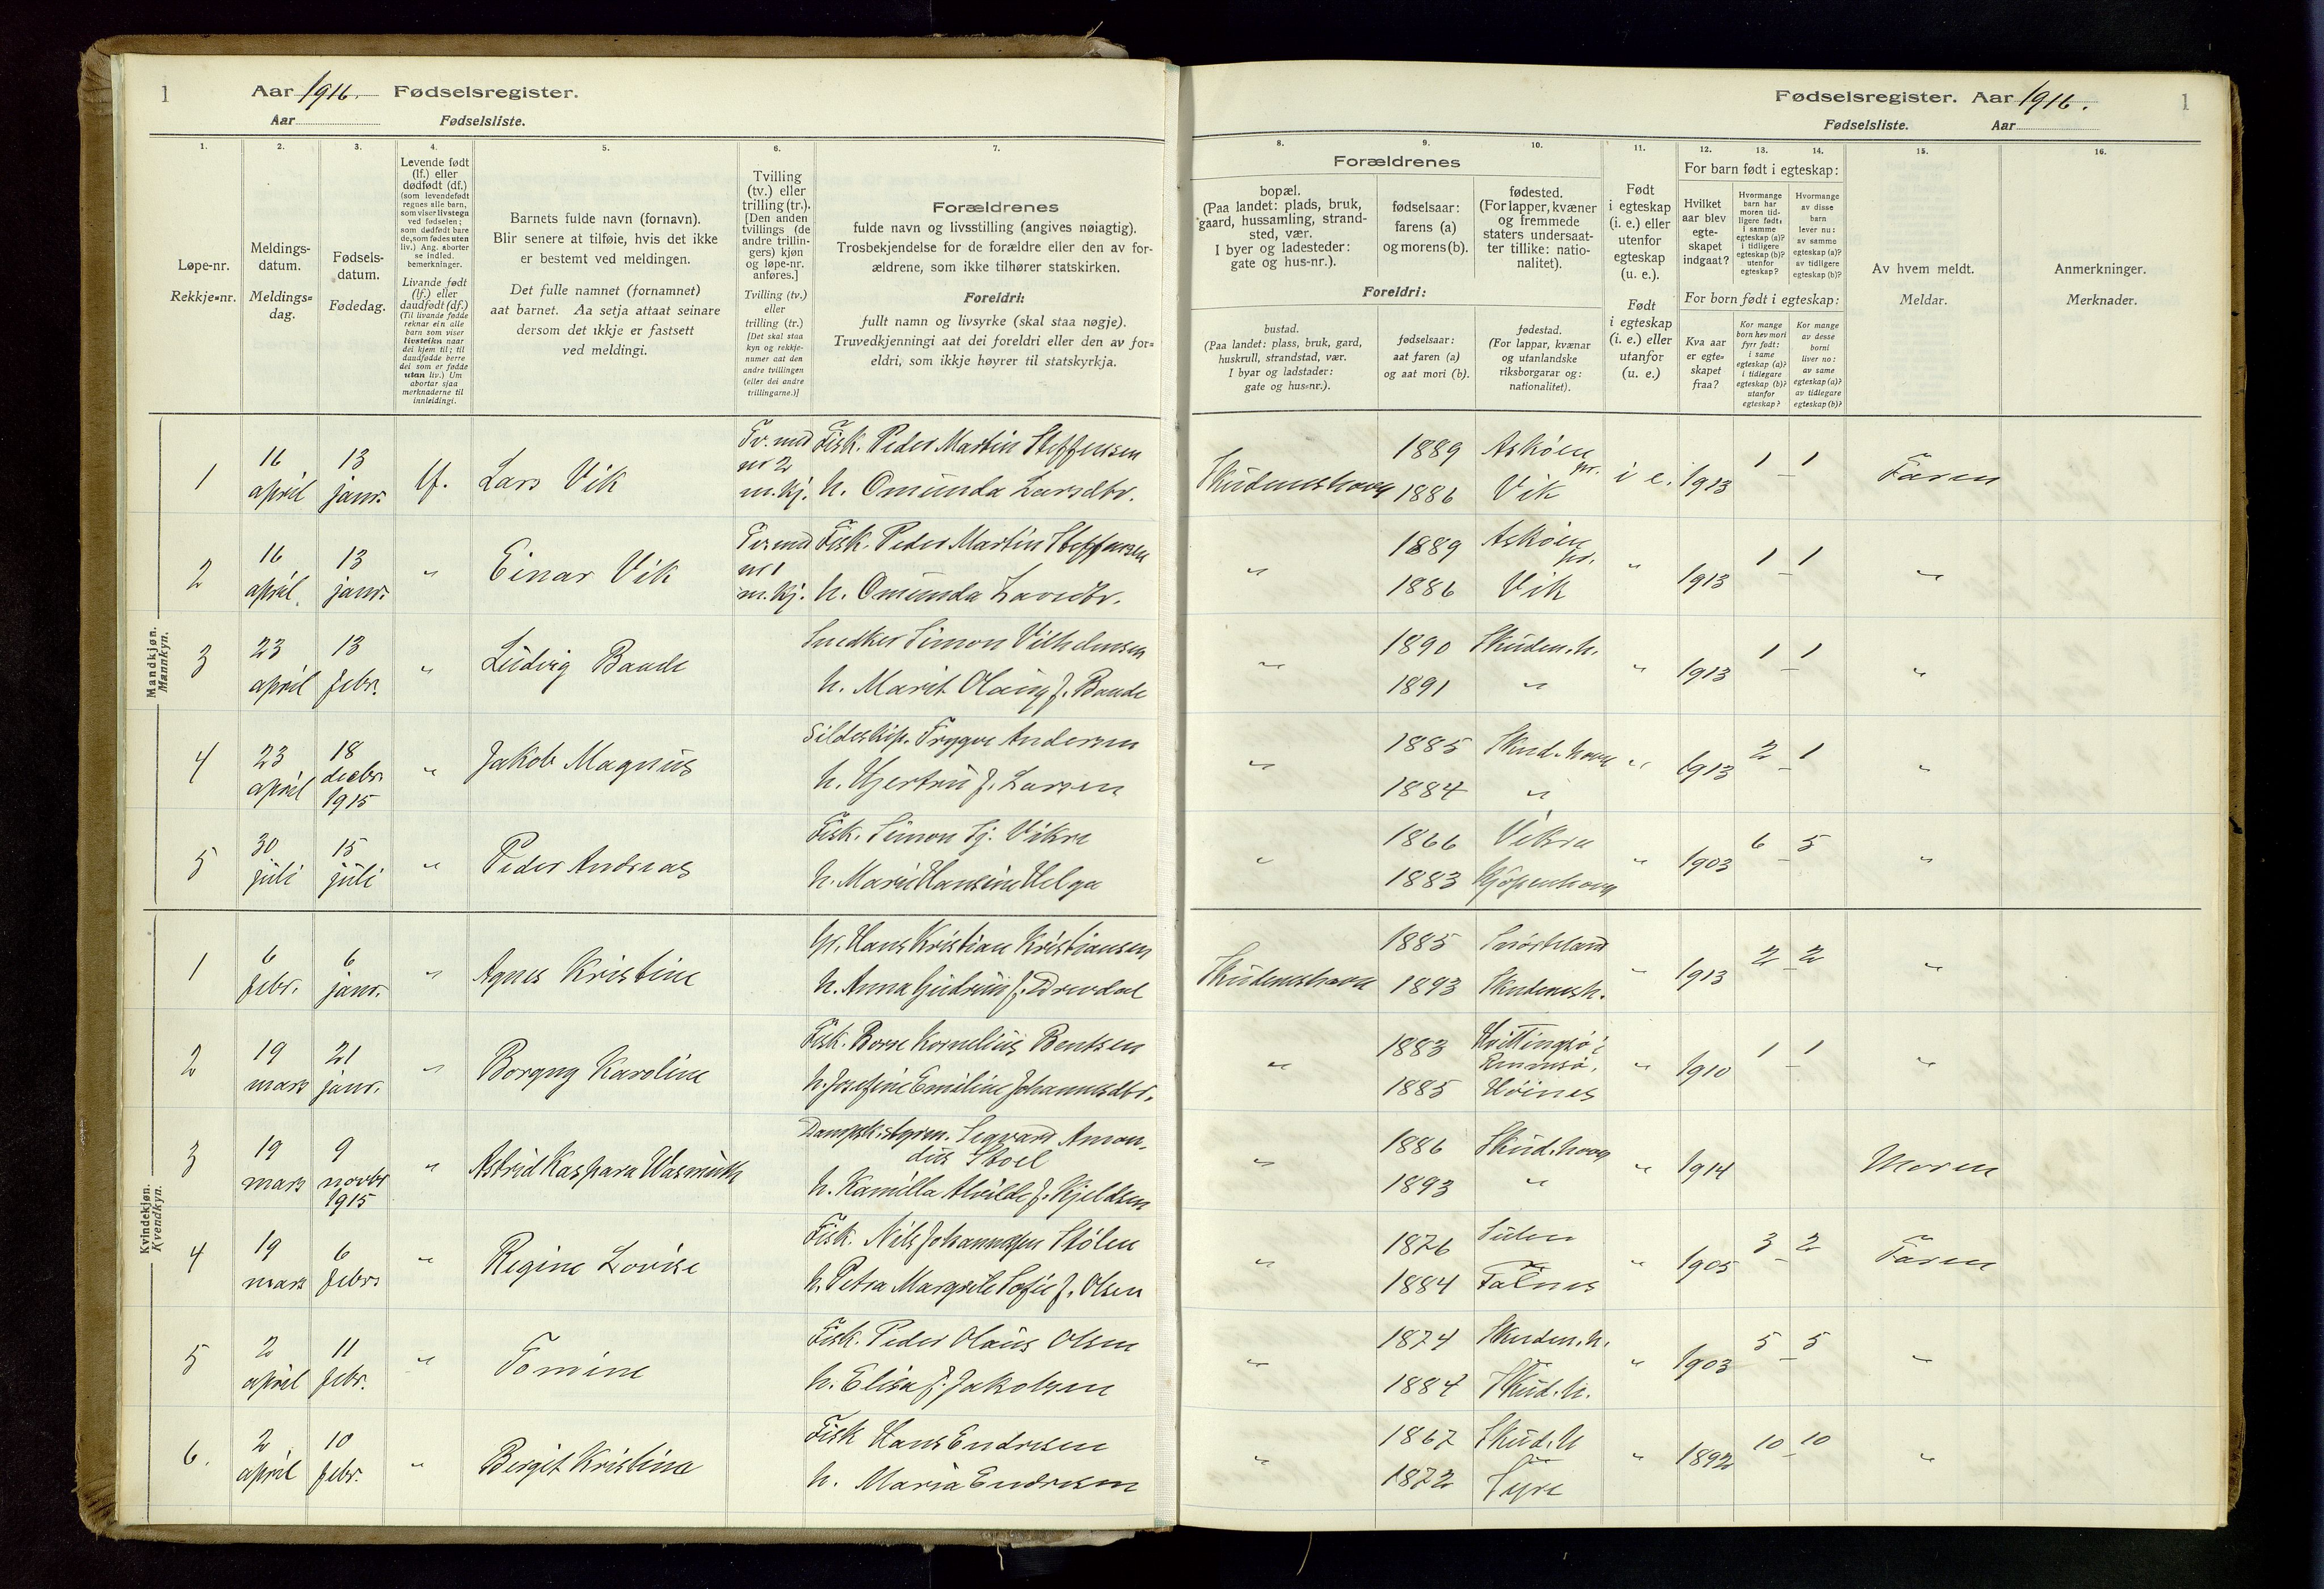 1
Aar 1916. Fødselsregister.
Aar Fødselsliste.
Fødselsregister. Aar 1916.
1
Fødselsliste. Aar
1.
Løpe-nr.
Rekkje=nr.
2.
Meldings-
datum.
Meldings=
dag.
3.
Fødsels-
datum.
Fødedag.
4.
Levende født
(lf.) eller
dødfødt (df.)
(som levendefødt
regnes alle barn,
som viser livstegn
ved fødselen;
som dødfødt bare
de, som fødes uten
liv.) Ang. aborter
se indled.
bemerkninger.
Livande født
(lf.) eller
daudfødt (df.)
(Til livande fødde
reknar ein alle
barn som viser
livsteikn naar
dei kjem til; til
daudfødde berre
dei som er fødde
utan liv.) Um
abortar sjaa
merknaderne til
innleidingi.
5.
Barnets fulde navn (fornavn).
Blir senere at tilføie, hvis det ikke
er bestemt ved meldingen.
Det fulle namnet (fornamnet)
aat barnet. Aa setja attaat seinare
dersom det ikkje er fastsett
ved meldingi.
6.
Tvilling
(tv.) eller
trilling (tr.).
[Den anden
tvillings (de
andre trillin-
gers) kjøn
og løpe-nr.
anføres.]
Tvilling (tv.)
eller
trilling (tr.)
[Det skal staa
kyn og rekkje-
numer aat den
andre tvillingen
(eller dei andre
trillingarne.)]
7.
Forældrenes
fulde navn og livsstilling (angives nøiagtig).
Trosbekjendelse for de forældre eller den av for-
ældrene, som ikke tilhører statskirken.
Foreldri:
fullt namn og livsyrke (skal staa nøgje).
Truvedkjenningi aat dei foreldri eller den av for=
eldri, som ikkje høyrer til statskyrkja.
8.
9.
10.
Forældrenes
bopæl.
(Paa landet: plads, bruk,
gaard, hussamling, strand-
sted, vær.
I byer og ladesteder:
gate og hus-nr.).
fødselsaar:
farens (a)
og morens (b).
fødested.
(For lapper, kvæner
og fremmede
staters undersaat-
ter tillike: natio-
nalitet).
Foreldri:
bustad.
(Paa landet: plass, bruk, gard,
huskrull, strandstad, vær.
I byar og ladstader:
gate og hus=nr.).
fødselsaar:
aat faren (a)
og aat mori (b).
fødestad.
(For lappar, kvænar
og utanlandske
riksborgarar og:
nationalitet).
11.
Født
i egteskap
(i. e.) eller
utenfor
egteskap
(u. e.).
Født
i egteskap
(i. e.) eller
utanfor
egteskap
(u. e.)
12.
13.
14.
For barn født i egteskap:
Hvilket
aar blev
egte-
skapet
indgaat?
Hvormange
barn har
moren tid-
ligere født:
i samme
egteskap (a)?
i tidligere
egteskap (b)?
utenfor
egteskap?
Hvormange
av disse
barn
lever nu:
av samme
egteskap (a)?
av tidligere
egteskap (b)?
For born født i egteskap:
Kva aar
er egte=
skapet
fraa?
Kor mange
born hev mori
fyrr født:
i same
egteskap (a)?
i tidlegare
egteskap (b)?
utanfor
egteskap?
Kor mange
av desse
borni
liver no:
av same
egteskap (a)?
av tidlegare
egteskap (b)?
15.
Av hvem meldt.
Meldar.
16.
Anmerkninger.
Merknader.
Mandkjøn.
Mannkyn.
1 16 april 13 janr. lf. Lars Vik Tv. med nr 2 m.kj. Fisk. Peder Martin Steffensen
h. Omunda Larsdtr.
Skudeneshavn 1889 Askøen pr. i e. 1913 1 – 1 Faren
1886 Vik
2 16 april 13 janr. " Einar Vik Tv. med nr 1 m.kj. Fisk. Peder Martin Steffensen
h. Omunda Larsdtr.
" 1889 Askøen pr. " 1913 1 – 1 "
1886 Vik
3 23 april 13 febr. " Ludvig Baade Snedker Simon Vilhelmsen
h. Marit Olaug f. Baade
" 1890 Skuden.h. " 1913 1 – 1 "
1891 "
4 23 april 18 decbr. 1915 " Jakob Magnus Sildeskip. Trygve Andersen
h. Gjertrü f. Larsen
" 1885 Skud.havn " 1913 2 – 1 "
1884 "
5 30 juli 15 juli " Peder Andreas Fisk. Simon Sj. Vikre
h. Marie Hansine Helga
" 1866 Vikra " 1903 6 – 5 "
1883 Kjøpenhavn
Kvindekjøn.
Kvendkyn.
1 6 febr. 6 janr. " Agnes Kristine Hans Kristian Kristiansen
h. Anna Gudrun f. Drevdal
Skudeneshavn 1885 " 1913 2 – 2 "
1893 Skudenesh.
2 19 mars 21 janr. " Borgny Karoline Fisk. Borre Kornelius Bentsen
h. Josefine Emilie Johannesdtr.
" 1883 Hvittingsø i Rennesø. " 1910 1 – 1 "
1885 Høines
3 19 mars 9 novbr 1915 " Astrid Kaspara Wasmuth Dampsk.styrm. Sigvard Amon-
dus Stoel
h. Kamilla Alvilde f. Kjeldsen
" 1886 Skud.havn " 1914 Moren
1893 "
4 19 mars 6 febr. " Regine Lovise Fisk. Nils Johannessen Stølen
h. Petra Margrete Sofie f. Olsen
" 1876 Sulen " 1905 3 – 2 Faren
1884 Falnes
5 2 april 11 febr. " Tomine Fisk. Peder Olaus Olsen
h. Elisa f. Jakobsen
" 1874 Skuden.h. " 1903 5 – 5 "
1884 Skud.h.
6. 2 april 10 febr. " Birgit Kristine Fisk Hans Endresen
h. Maria Endresen
" 1867 Skud.h " 1892 10 – 10 "
1872 Syre